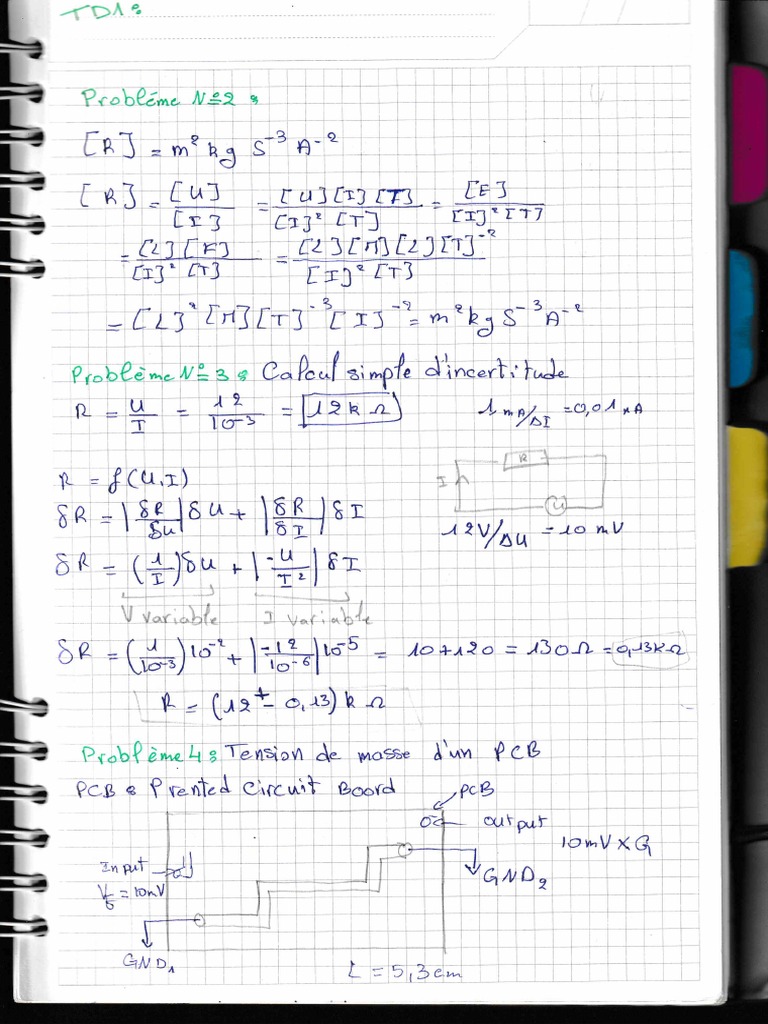 TD1:
Probléme N°2:
[R] = m² kg S⁻³ A⁻²
[R] = [U]/[I] = [U][I][T]/[I]²[T] = [E]/[I]²[T]
= [L][F]/[I]²[T] = [L][M][L][T]⁻²/[I]²[T]
= [L]²[M][T]⁻³[I]⁻² = m² kg S⁻³ A⁻²
Problème N°3: Calcul simple d'incertitude
R = U/I = 12/10⁻³ = 12kΩ 1mA/ΔI = 0,01mA
R
R = f(U,I) I
δR = |δR/δU| δU + |δR/δI| δI U
12V/ΔU = 10mV
δR = (1/I) δU + |-U/I²| δI
V variable I variable
δR = (1/10⁻³)10⁻² + |-12/10⁻⁶|10⁻⁵ = 10+120 = 130Ω = 0,13kΩ
R = (12 ± 0,13) kΩ
Problème 4: Tension de masse d'un PCB
PCB: Prented Circuit Board
PCB
output 10mV×G
Input
= 10mV
GND₂
GND₁
L = 5,3cm